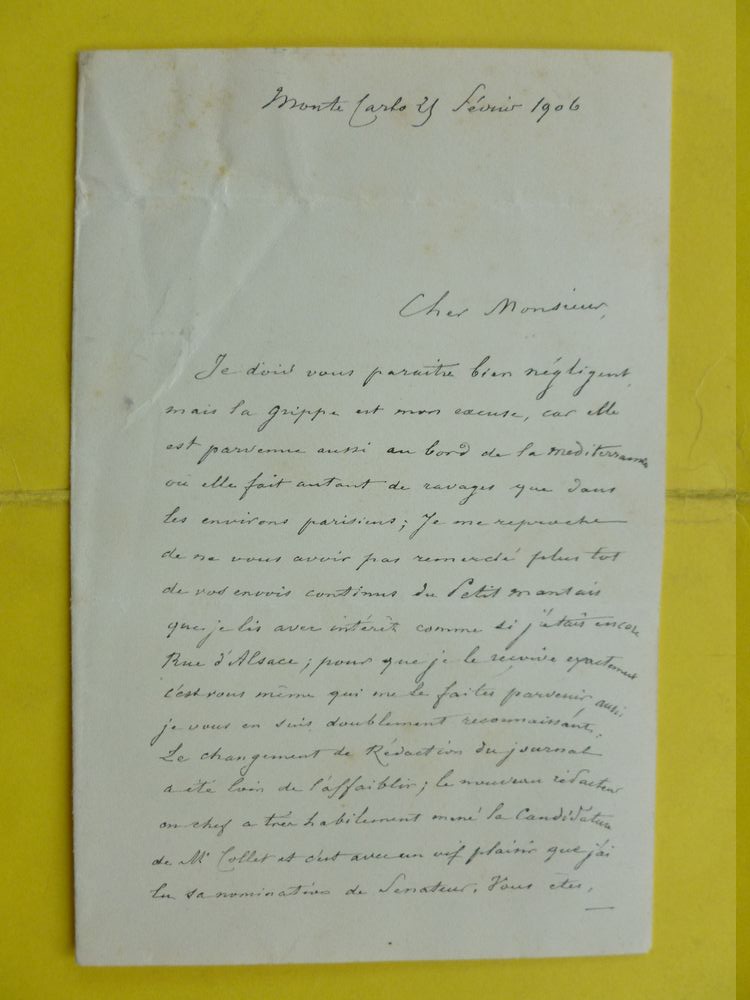 Monte Carlo 25 Février 1906
Cher Monsieur,
Je dois vous paraitre bien négligent,
mais la grippe est mon excuse, car elle
est parvenue aussi au bord de la mediterranée
où elle fait autant de ravages que dans
les environs parisiens; Je me reproche
de ne vous avoir pas remercié plus tot
de vos envois continus du Petit mantais
que je lis avec intérêt comme si j'étais encore
Rue d'Alsace; pour que je le reçoive exactement
c'est vous même qui me le faites parvenir aussi
je vous en suis doublement reconnaissant.
Le changement de Rédaction du journal
a été loin de l'affaiblir; le nouveau rédacteur
en chef a très habilement mené la Candidature
de Mr Collet et c'est avec un vif plaisir que j'ai
lu sa nomination de Senateur. Vous etes,